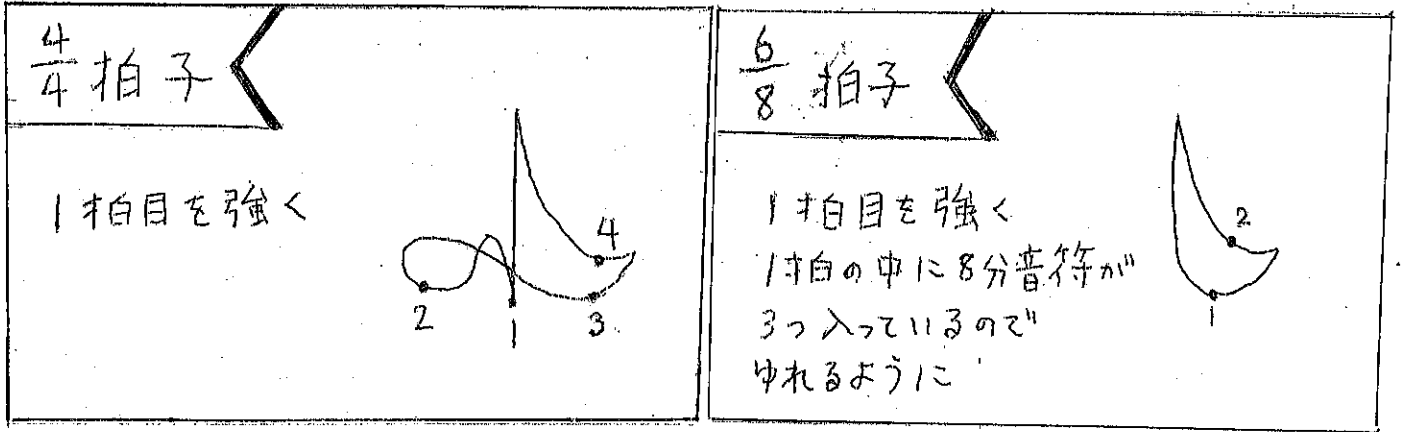 4/4拍子
1拍目を強く
4
2
1
3
6/8拍子
1拍目を強く
1拍の中に8分音符が
3つ入っているので
ゆれるように
2
1